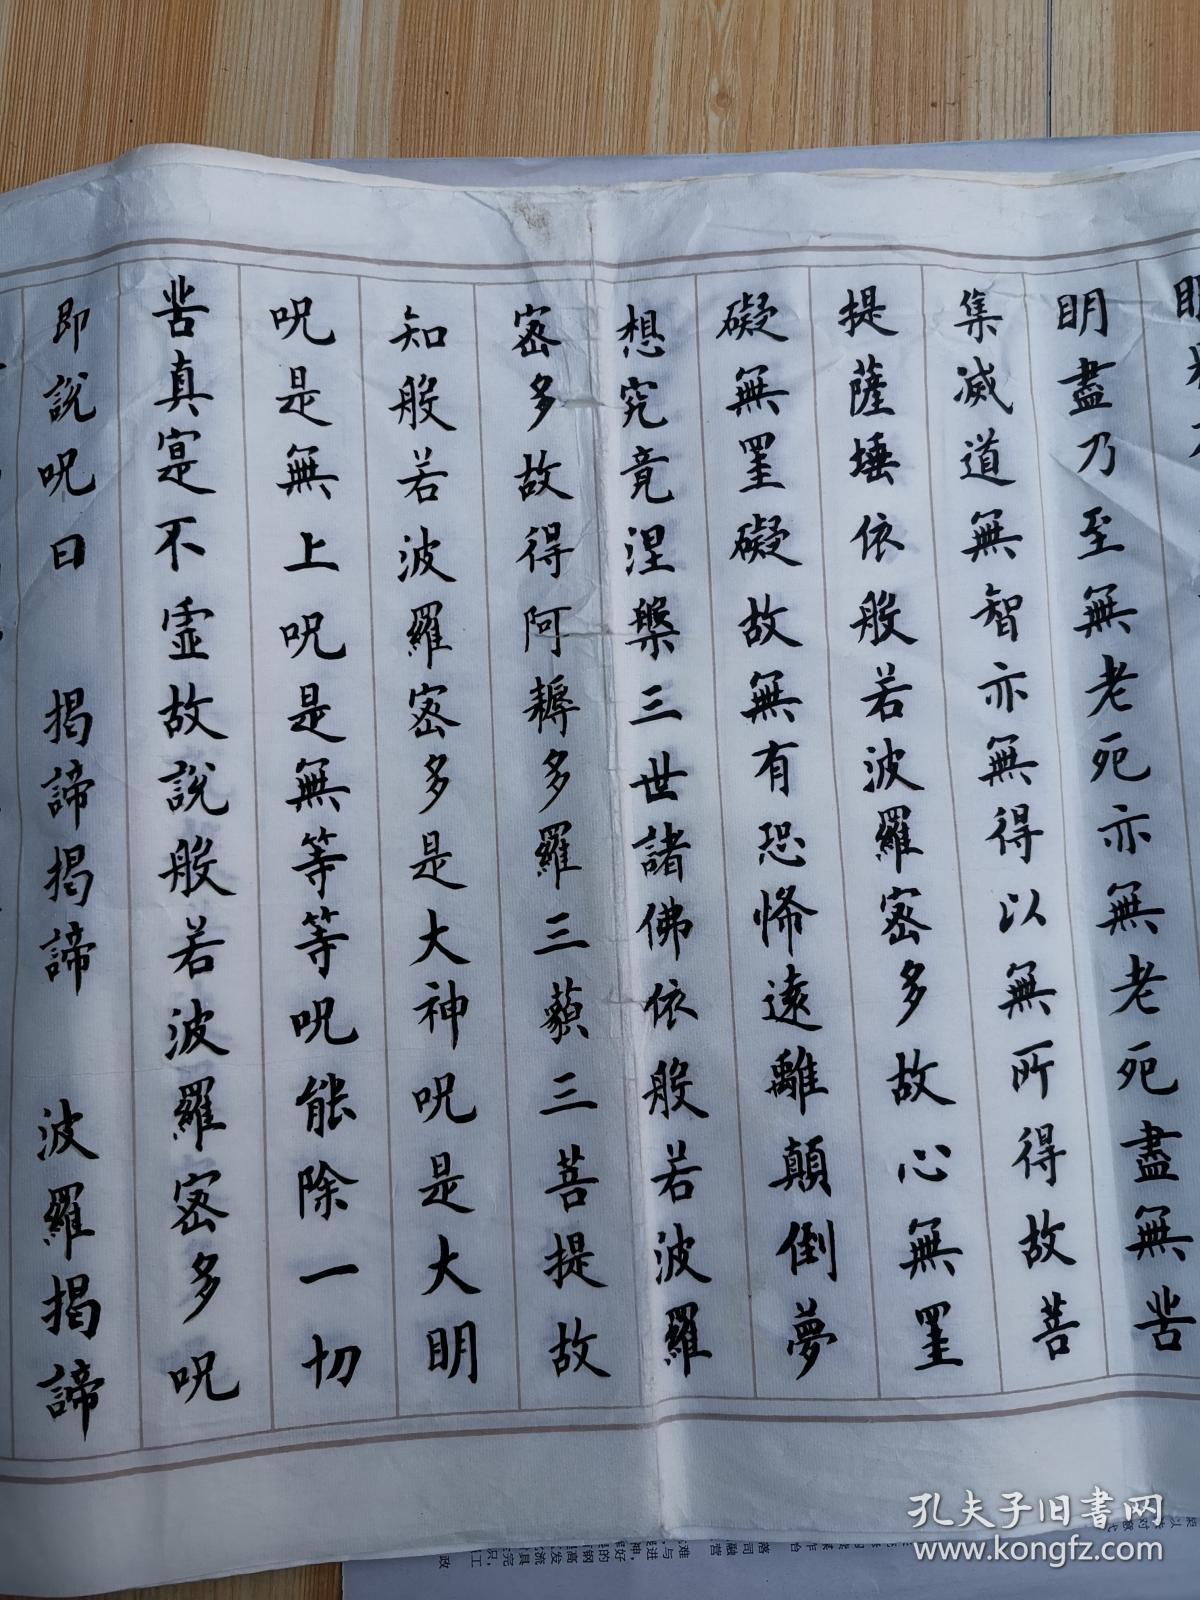 明盡乃至無老死亦無老死盡無苦
集滅道無智亦無得以無所得故菩
提薩埵依般若波羅密多故心無罣
礙無罣礙故無有恐怖遠離顛倒夢
想究竟涅槃三世諸佛依般若波羅
密多故得阿耨多羅三藐三菩提故
知般若波羅密多是大神呪是大明
呪是無上呪是無等等呪能除一切
苦真寔不虛故說般若波羅密多呪
即說呪曰 揭諦揭諦 波羅揭諦
孔夫子旧書网
www.kongfz.com